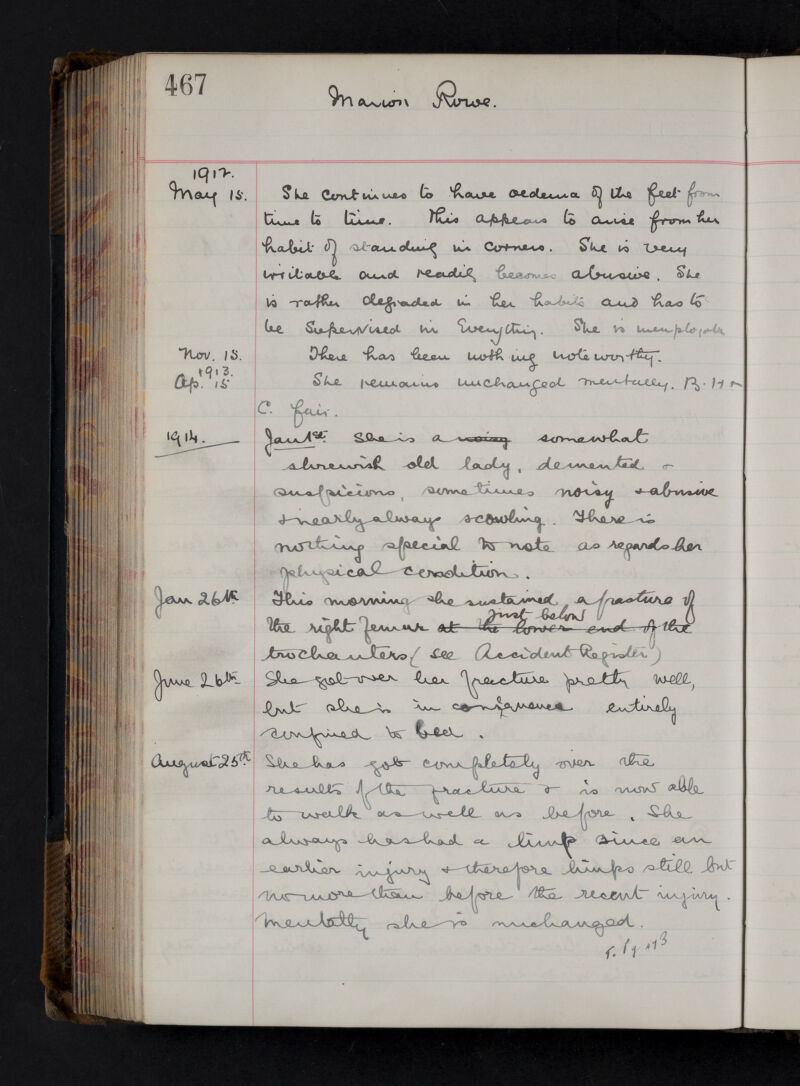 467
Marion Rowe.
1912.
May 15. She continues to have oedema of the feet from
time to time. This appears to arise from her
habit of standing in corners. She is very
irritable and readily becomes abusive. She
is rather degraded in her habits and has to
be supervised in Everything. She is
Nov. 15. There has been nothing noteworthy.
1913.
Ap. 15 She remains unchanged mentally. B. H &
C. fair.
1914. Jan 1st. She is a noisy somewhat
shrewish old lady, demented &
suspicious, sometimes noisy & abusive
& nearly always scowling. There is
nothing special to note as regards her
physical condition.
Jan 26th This morning she sustained a fracture of
just below
the right femur at the lower end of the
trochanters (see Accident Register)
June 26th She got over her fracture pretty well,
but she is in consequence entirely
confined to bed.
August 25th She has got completely over the
results of the fracture & is now able
to walk as well as before. She
always has had a limp since an
earlier injury & therefore limps still but
no more than before the recent injury.
Mentally she is unchanged.